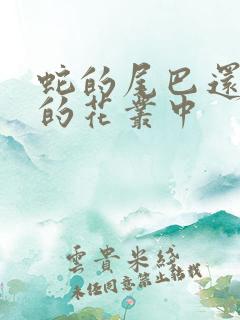 蛇的尾巴還
的花叢中
雲貴米綫
未經同意禁止轉載